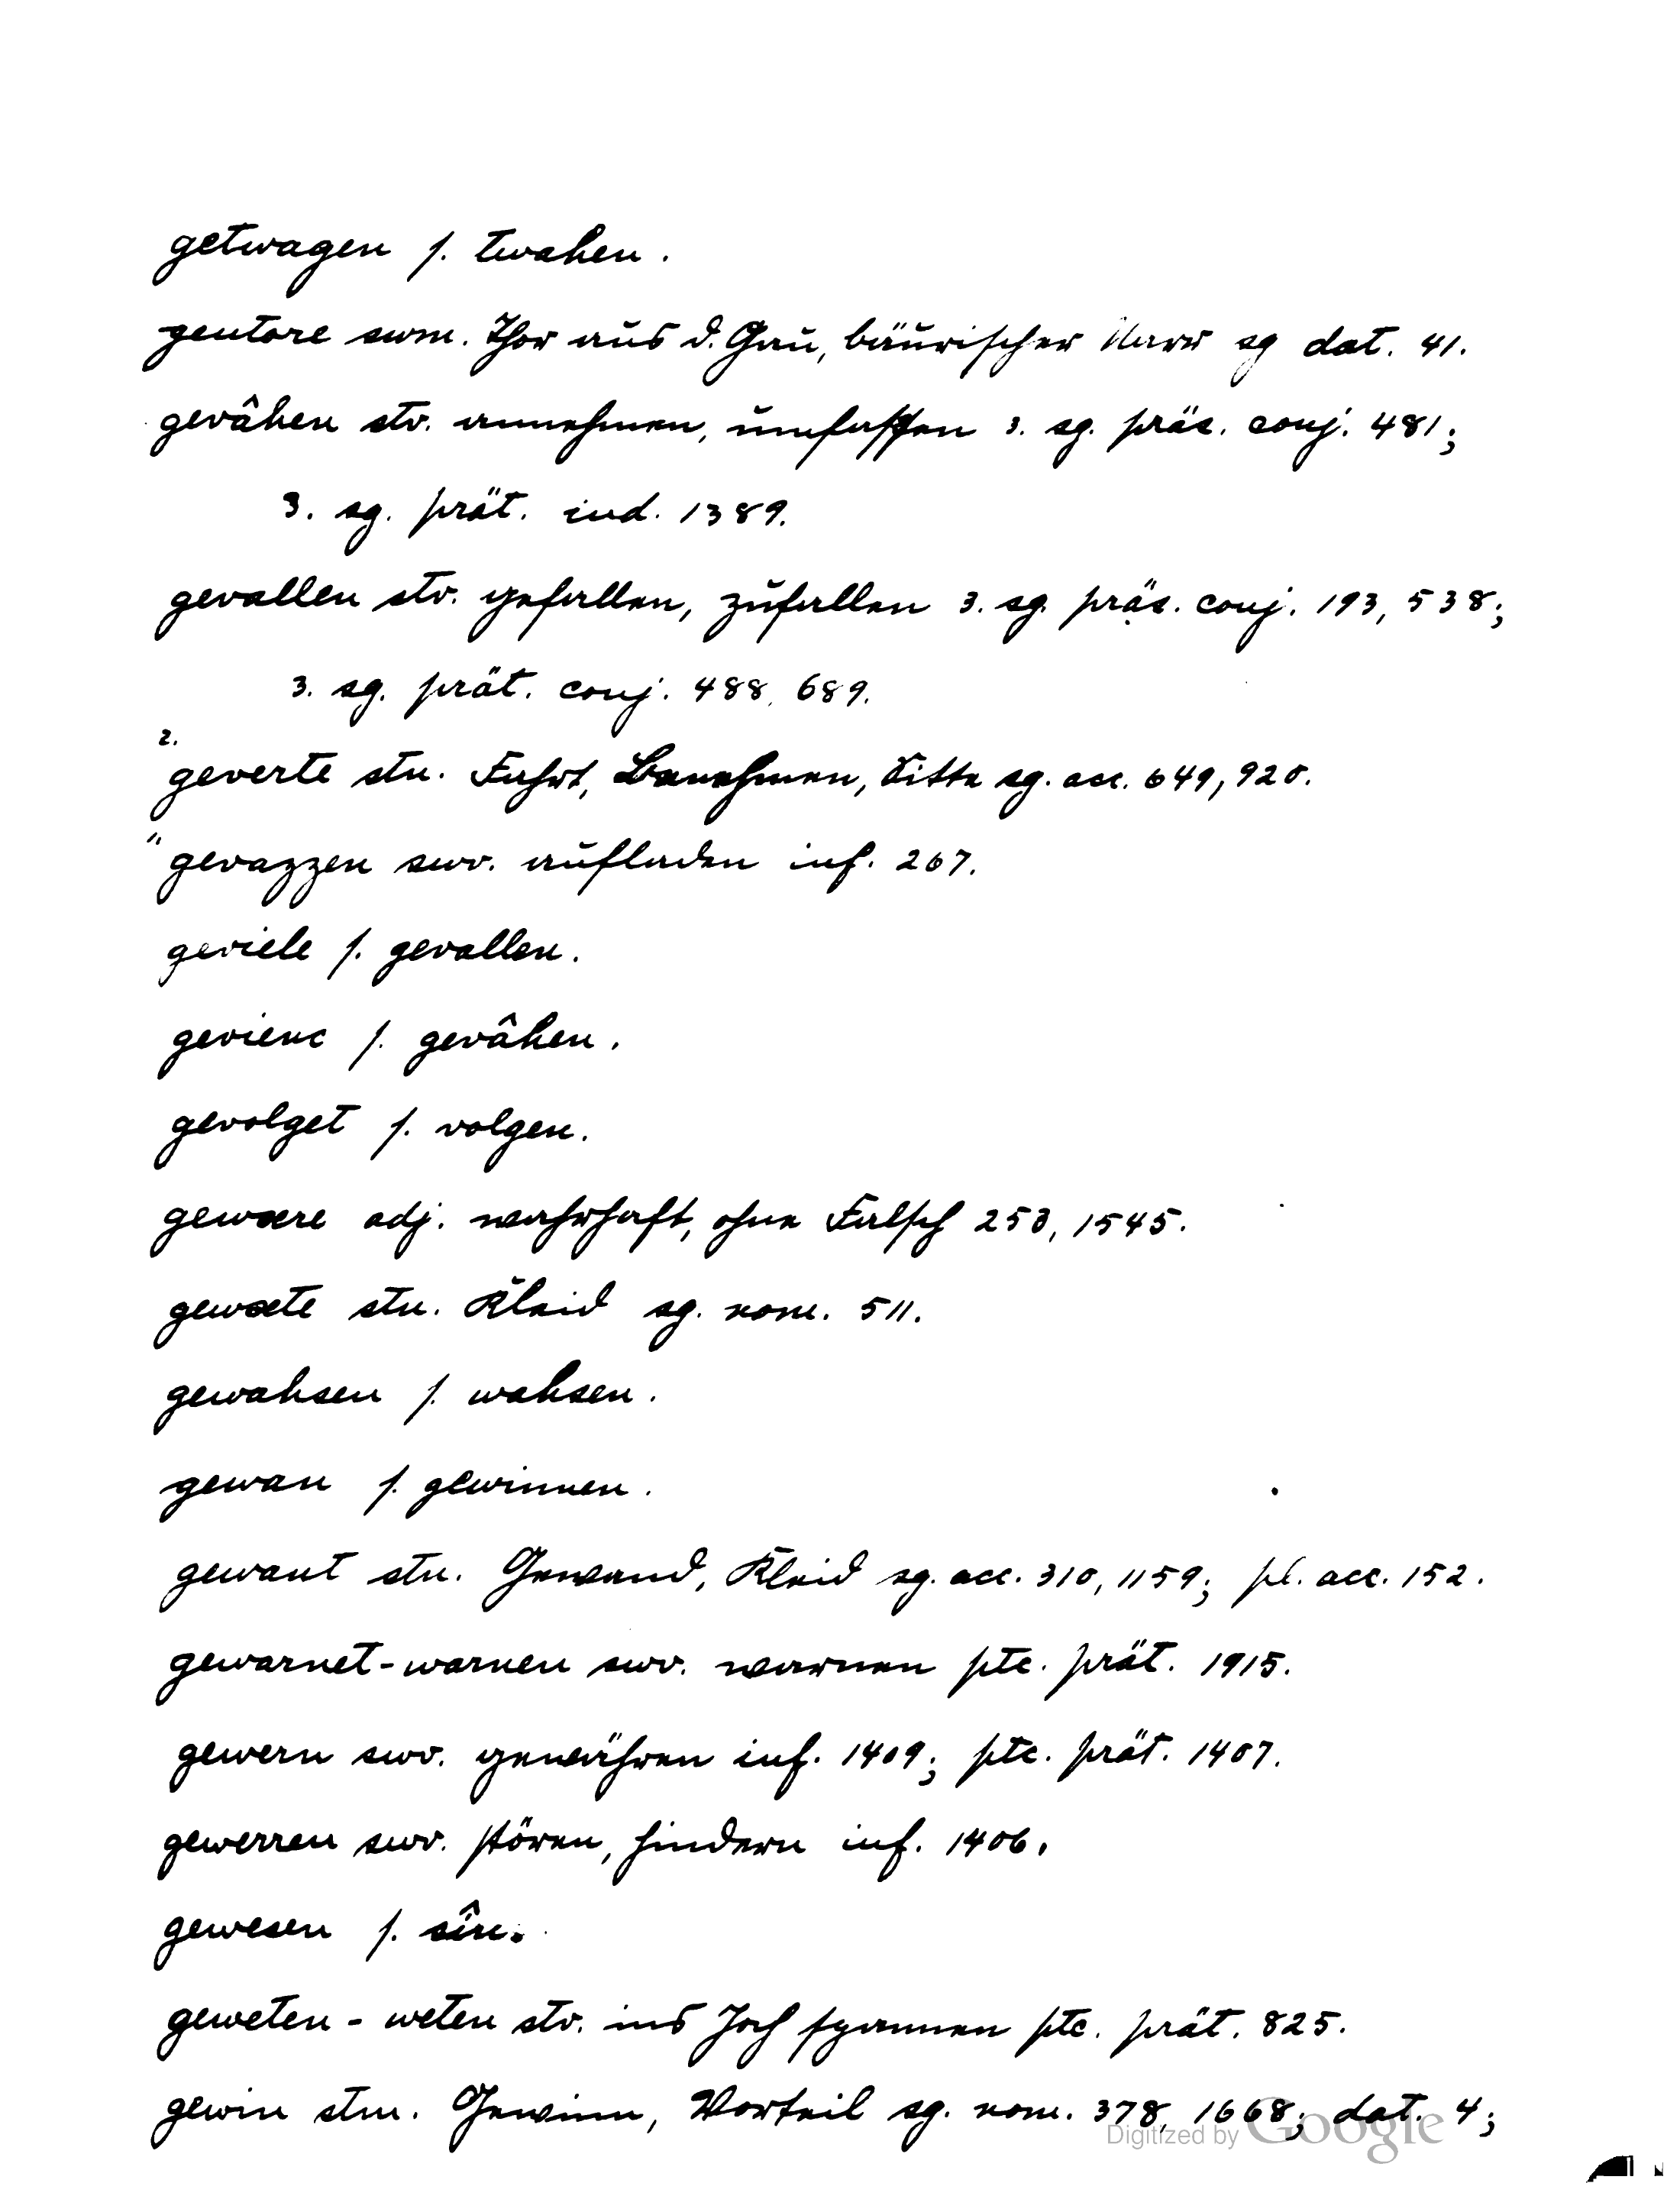 getwagen s. twahen.
geutore swm. Thor aus d. Gau, bäurischer Narr sg dat. 41.
gevâhen stv. annehmen, umfassen 3. sg. präs. conj. 481;
3. sg. prät. ind. 1389.
gevallen stv. gefallen, zufallen 3. sg. präs. conj. 193, 538;
3. sg. prät. conj. 488, 689.
2.
geverte stn. Fahrt, Benehmen, Sitte sg. acc. 649, 920.
" gevazzen swv. aufladen inf. 267.
geviele s. gevallen.
gevienc s. gevâhen.
gevolget s. volgen.
gewære adj. wahrhaft, ohne Falsch 253, 1545.
gewæte stn. Kleid sg. nom. 511.
gewahsen s. wahsen.
gewan s. gewinnen.
gewant stn. Gewand, Kleid sg. acc. 310, 1159; pl. acc. 152.
gewarnet - warnen swv. warnen ptc. prät. 1915.
gewern swv. gewähren inf. 1409; ptc. prät. 1407.
gewerren swv. stören, hindern inf. 1406.
gewesen s. sîn.
geweten - weten stv. ins Joch spannen ptc. prät. 825.
gewin stm. Gewinn, Vorteil sg. nom. 378, 1668; dat. 4;
Digitized by Google